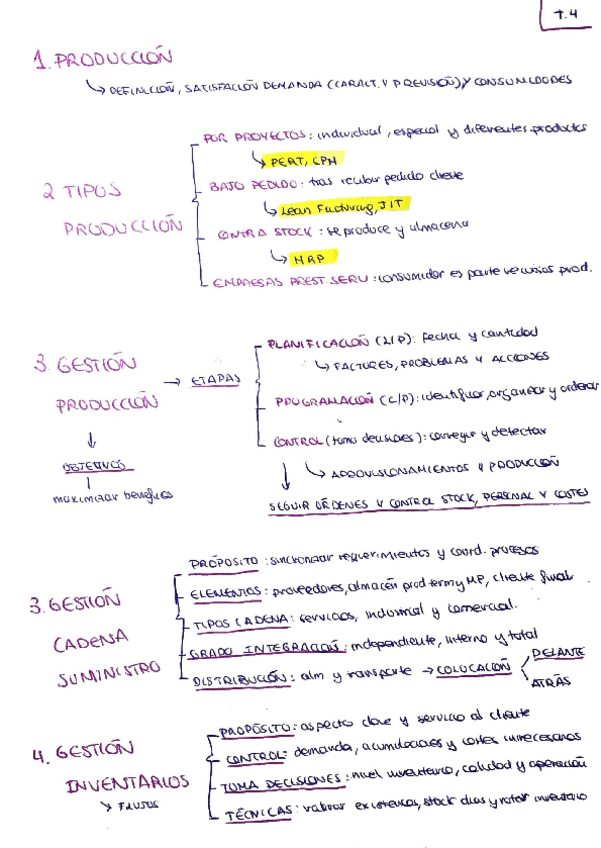 T.4
1. PRODUCCIÓN
↳ DEFINICIÓN, SATISFACIÓN DEMANDA (CARACT. Y PREVISIÓN) Y CONSUMIDORES
2 TIPOS
PRODUCCIÓN
POR PROYECTOS: individual, especial y diferentes productos
↳ PERT, CPM
BAJO PEDIDO: tras recibir pedido cliente
↳ Lean Facturing, JIT
CONTRA STOCK: se produce y almacena
↳ MRP
EMPRESAS PREST. SERV: consumidor es parte prod.
3. GESTIÓN
PRODUCCIÓN
↓
OBJETIVOS
maximizar beneficios
→ ETAPAS
PLANIFICACIÓN (L/P): fecha y cantidad
↳ FACTORES, PROBLEMAS Y ACCIONES
PROGRAMACIÓN (C/P): identificar, organizar y ordenar
CONTROL (toma decisiones): corregir y detectar
↳ APROVISIONAMIENTOS Y PRODUCCIÓN
SEGUIR ÓRDENES Y CONTROL STOCK, PERSONAL Y COSTES
3. GESTIÓN
CADENA
SUMINISTRO
PROPOSITO: sincronizar requerimientos y coord. procesos
ELEMENTOS: proveedores, almacén prod term y MP, cliente final
TIPOS CADENA: servicios, industrial y comercial.
GRADO INTEGRACIÓN: independiente, interno y total
DISTRIBUCIÓN: alm y transporte → COLOCACIÓN
DELANTE
ATRÁS
4. GESTIÓN
INVENTARIOS
↘ FLUJOS
PROPÓSITO: aspecto clave y servicio al cliente
CONTROL: demanda, acumulaciones y costes innecesarios
TOMA DECISIONES: nivel inventario, calidad y operación
TÉCNICAS: valorar existencias, stock dias y rotar inventario